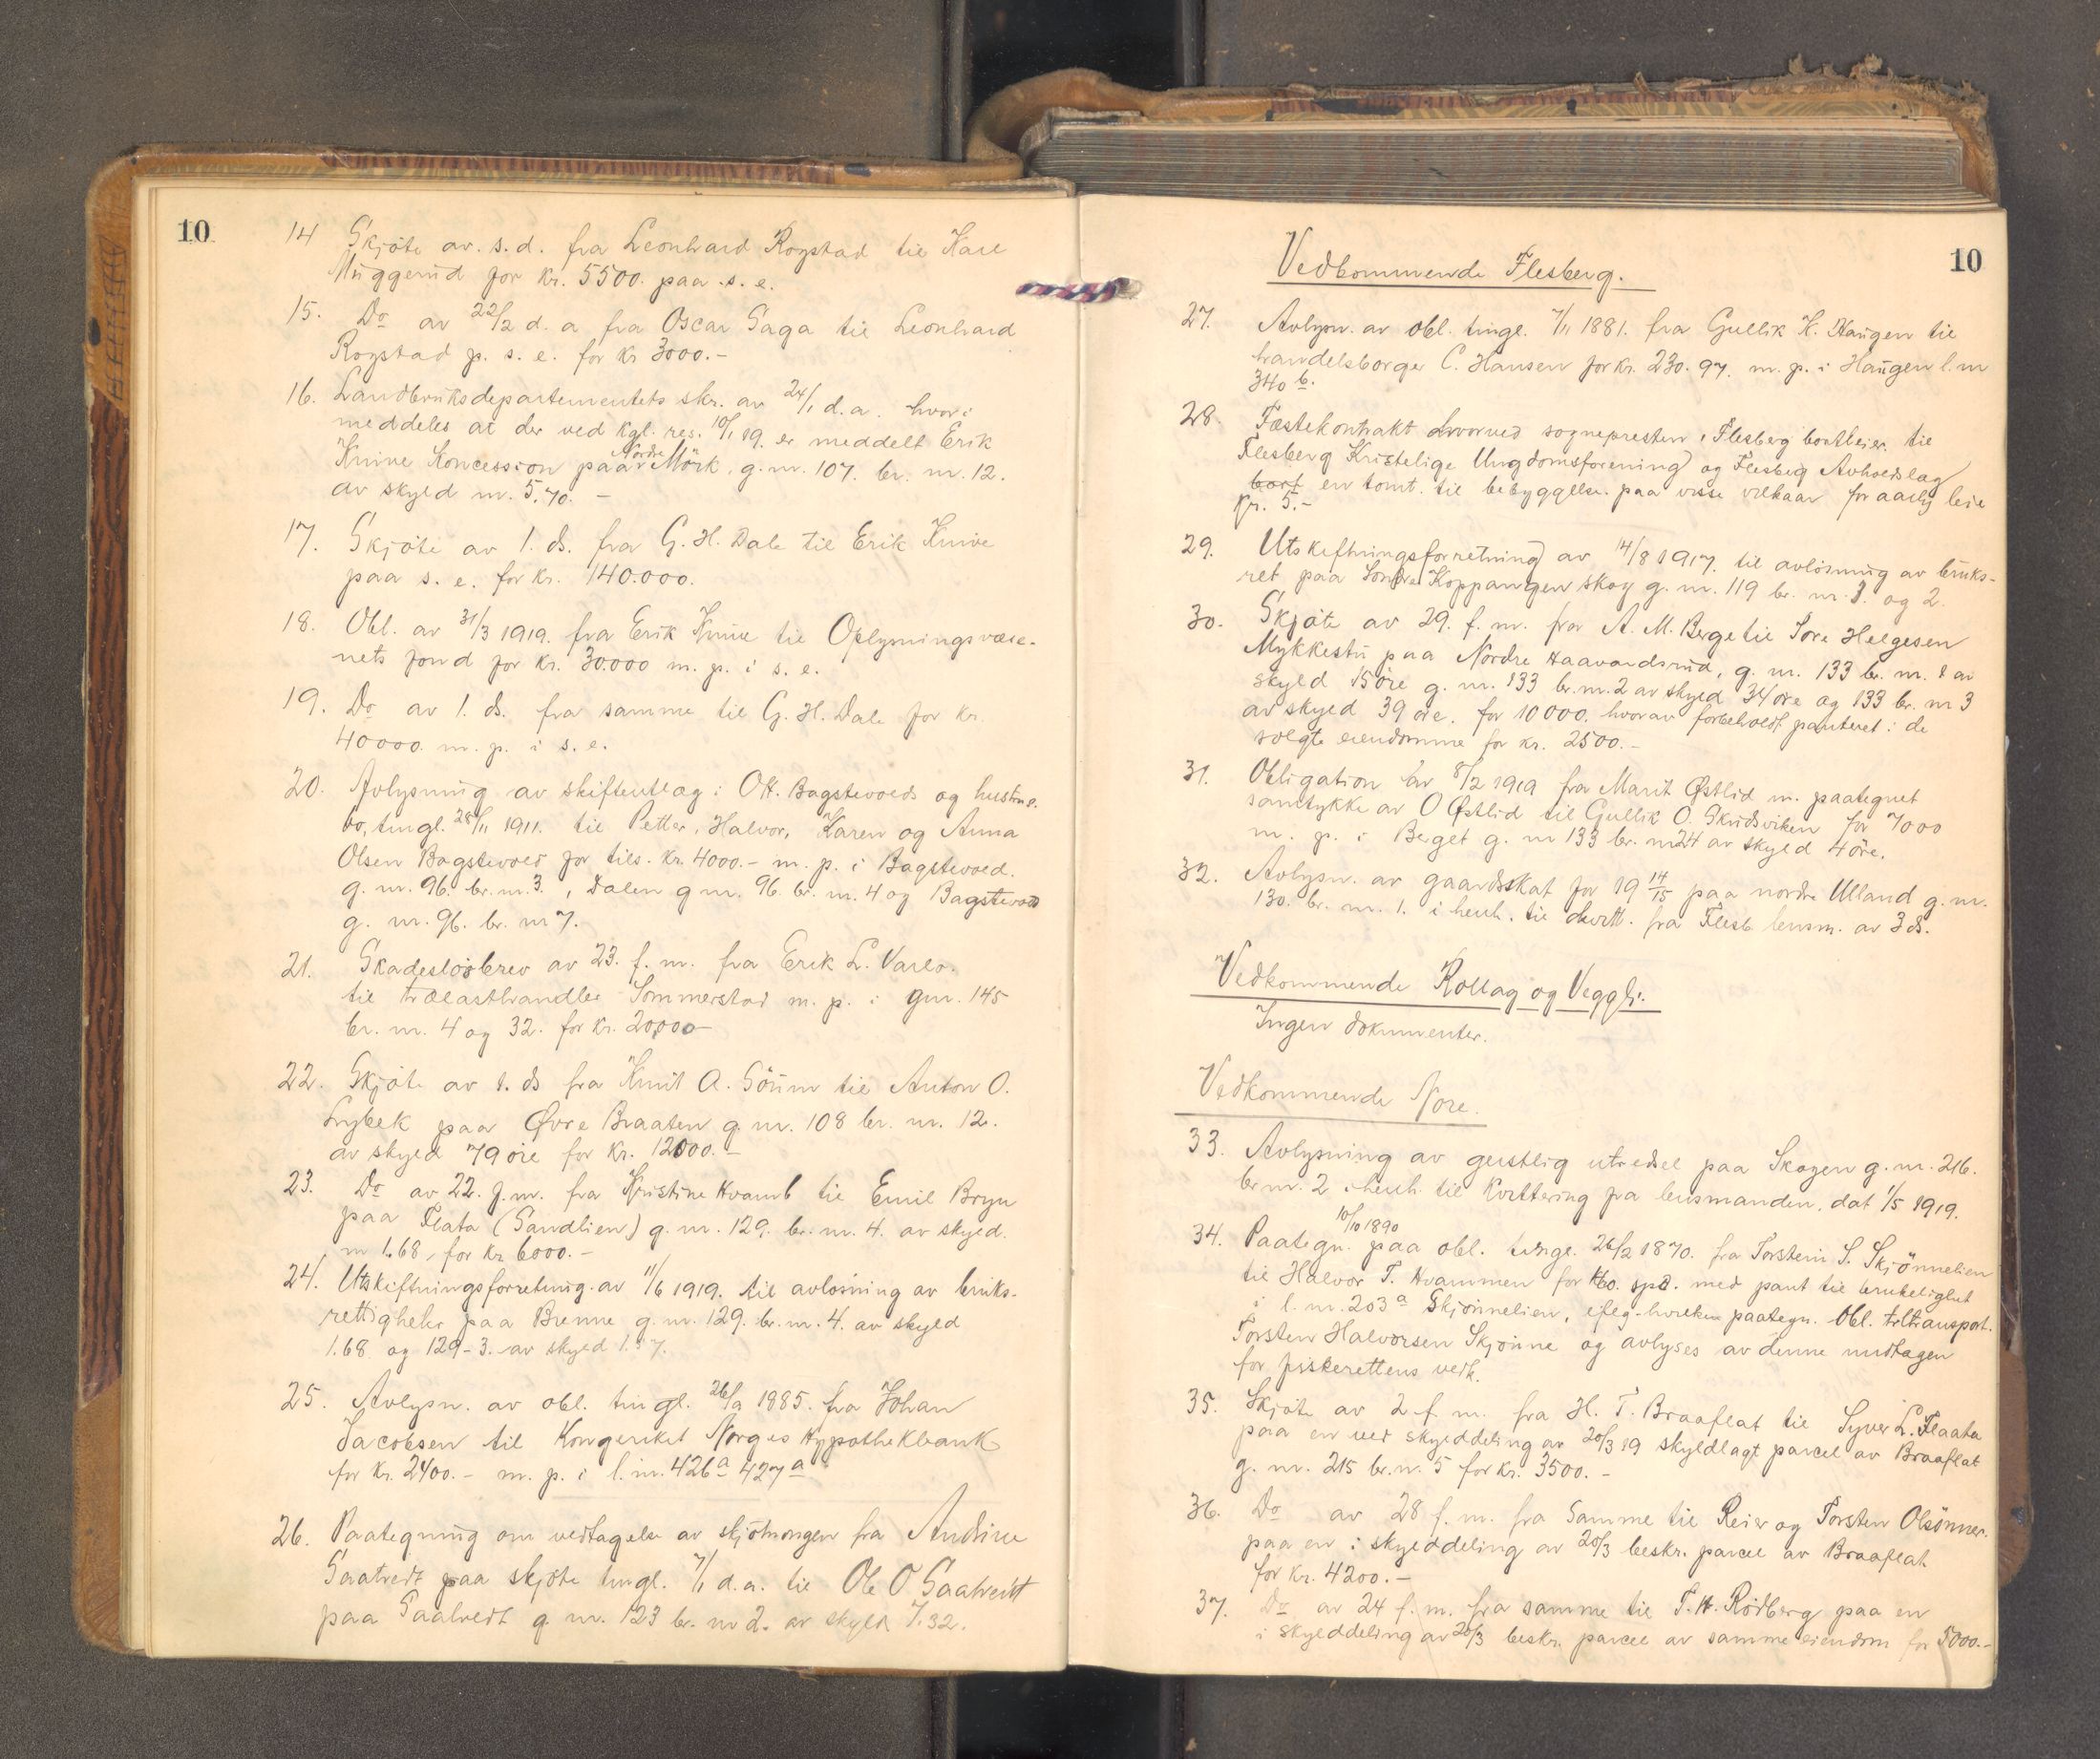 10
14 Skjöte av. s. d. fra Leonhard Rogstad til Kare
Muggerud for kr. 5500. paa s. e.
15. Do av 22/2 d. a fra Oscar Saga til Leonhard
Rogstad p. s. e. for kr 3000.-
16. Landbruksdepartementets skr. av 24/1 d. a. hvori
meddeles at der ved kgl. res. 10/1 19. er meddelt Erik
Knive Koncession paa Nordre Mörk. g. nr. 107. br. nr. 12.
av skyld m. 5.70. -
17. Skjöte av 1. ds. fra G. H. Dale til Erik Knive
paa s. e. for kr. 140.000.
18. Obl. av 31/3 1919. fra Erik Knive til Oplysningsvæse-
nets fond for kr. 30.000 m. p. i s. e.
19. Do av 1. ds. fra samme til G. H. Dale for kr.
40000. m. p. i s. e.
20. Avlysning av skifteutlæg i Ott. Bagstevolds og hustrus
bo, tingl. 28/11 1911. til Petter, Halvor, Karen og Anna
Olsen Bagstevold for tils. kr. 4000.- m. p. i Bagstevold.
g. nr. 96. br. nr. 3., Dalen g nr. 96. br. nr. 4 og Bagstevold
g. nr. 96. br. nr 7.
21. Skadeslösbrev av 23. f. m. fra Erik L. Varlo.
til trælasthandler Sommerstad m. p. i gnr. 145
br. nr. 4 og 32. for kr. 20,000-
22. Skjöte av 1. ds fra Knut A. Göunn til Anton O.
Lybek paa Øvre Braaten g. nr. 108 br. nr. 12.
av skyld 79 öre for kr. 12000.-
23. Do av 22. f. m. fra Kristine Hvamb til Emil Bryn
paa Flata (Sandlien) g. nr. 129. br. nr. 4. av skyld.
m 1.68, for kr 6000.-
24. Utskiftningsforretning. av 11/6 1919. til avlösning av bruks-
rettigheter paa Brenne g. nr. 129. br. nr. 4. av skyld
1.68 og 129-3. av skyld 1.37.
25. Avlysn. av obl. tingl. 26/9 1885. fra Johan
Jacobsen til Kongeriket Norges Hypothekbank
for kr. 2400.- m. p. i l. nr. 426a 427a
26. Paategning om vedtagelse av skjötningen fra Andrine
Saatvedt paa skjöte tingl. 7/1 d. a. til Ole O Saatvedt
paa Saatvedt g. nr. 123 br. nr 2. av skyld 7.32.
10
Vedkommende Flesberg.
27. Avlysn. av obl. tingl. 7/11 1881. fra Gullik K. Haugen til
handelsborger C. Hansen for kr. 230.97. m. p. i Haugen l. nr
340 b.
28. Fæstekontrakt hvorved sognepresten i Flesberg bortleier til
Flesberg Kristelige Ungdomsforening og Flesberg Avholdslag
bort en tomt. til bebyggelse paa visse vilkaar for aarlig leie
kr. 5.-
29. Utskiftningsforretning av 14/8 1917. til avlösning av bruks-
ret paa Söndre Koppangen skog g. nr. 119 br. nr. 1. og 2.
30. Skjöte av 29. f. m. fra A. M. Berge til Tore Helgesen
Mykkestu paa Nordre Haavardsrud, g. nr. 133 br. nr. 1 av
skyld 15 öre g. nr. 133 br. nr. 2 av skyld 34 öre og 133 br. nr 3
av skyld 39 öre. for 10000. hvorav forbeholdt panteret i de
solgte eiendomme for kr. 2500.-
31. Obligation av 8/2 1919 fra Marit Østlid m. paategnet
samtykke av O Østlid til Gullik O. Skridsviken for 7000
m. p. i Berget g. nr 133 br. nr 24 av skyld 4 öre.
32. Avlysn. av gaardsskat for 19 14/15 paa nordre Ulland g. nr.
130. br. nr. 1. i henh. til kvitt. fra Flesb lensm. av 3 ds.
Vedkommende Rollag og Veggli.
Ingen dokumenter.
Vedkommende Nore.
33. Avlysning av geistlig utredsel paa Skogen g. nr. 216.
br nr. 2 i henh. til kvittering fra lensmanden, dat 1/5 1919.
10/10 1890
34. Paategn. paa obl. tingl. 26/2 1870. fra Torstein S. Skjönnelien
til Halvor T. Hvammen for 160. spd. med pant til brukelighet
i l. nr. 203 a Skjönnelien, ifølg hvilken paategn. Obl. tiltransport.
Torsten Halvorsen Skjönne og avlyses av denne undtagen
for fiskerettens vedk.
35. Skjöte av 2 f. m. fra H. T. Braaflat til Syver L. Flaata
paa en ved skylddeling av 20/3 19 skyldlagt parcel av Braaflat
g. nr. 215 br. nr. 5 for kr. 3500.-
36. Do av 28 f. m. fra Samme til Reier og Torsten Olsönner.
paa en i skylddeling av 20/3 beskr. parcel av Braaflat
for kr. 4200.-
37. Do av 24 f. m. fra samme til T. H. Rödberg paa en
i skylddeling av 20/3 beskr. parcel av samme eiendom for 5000.-